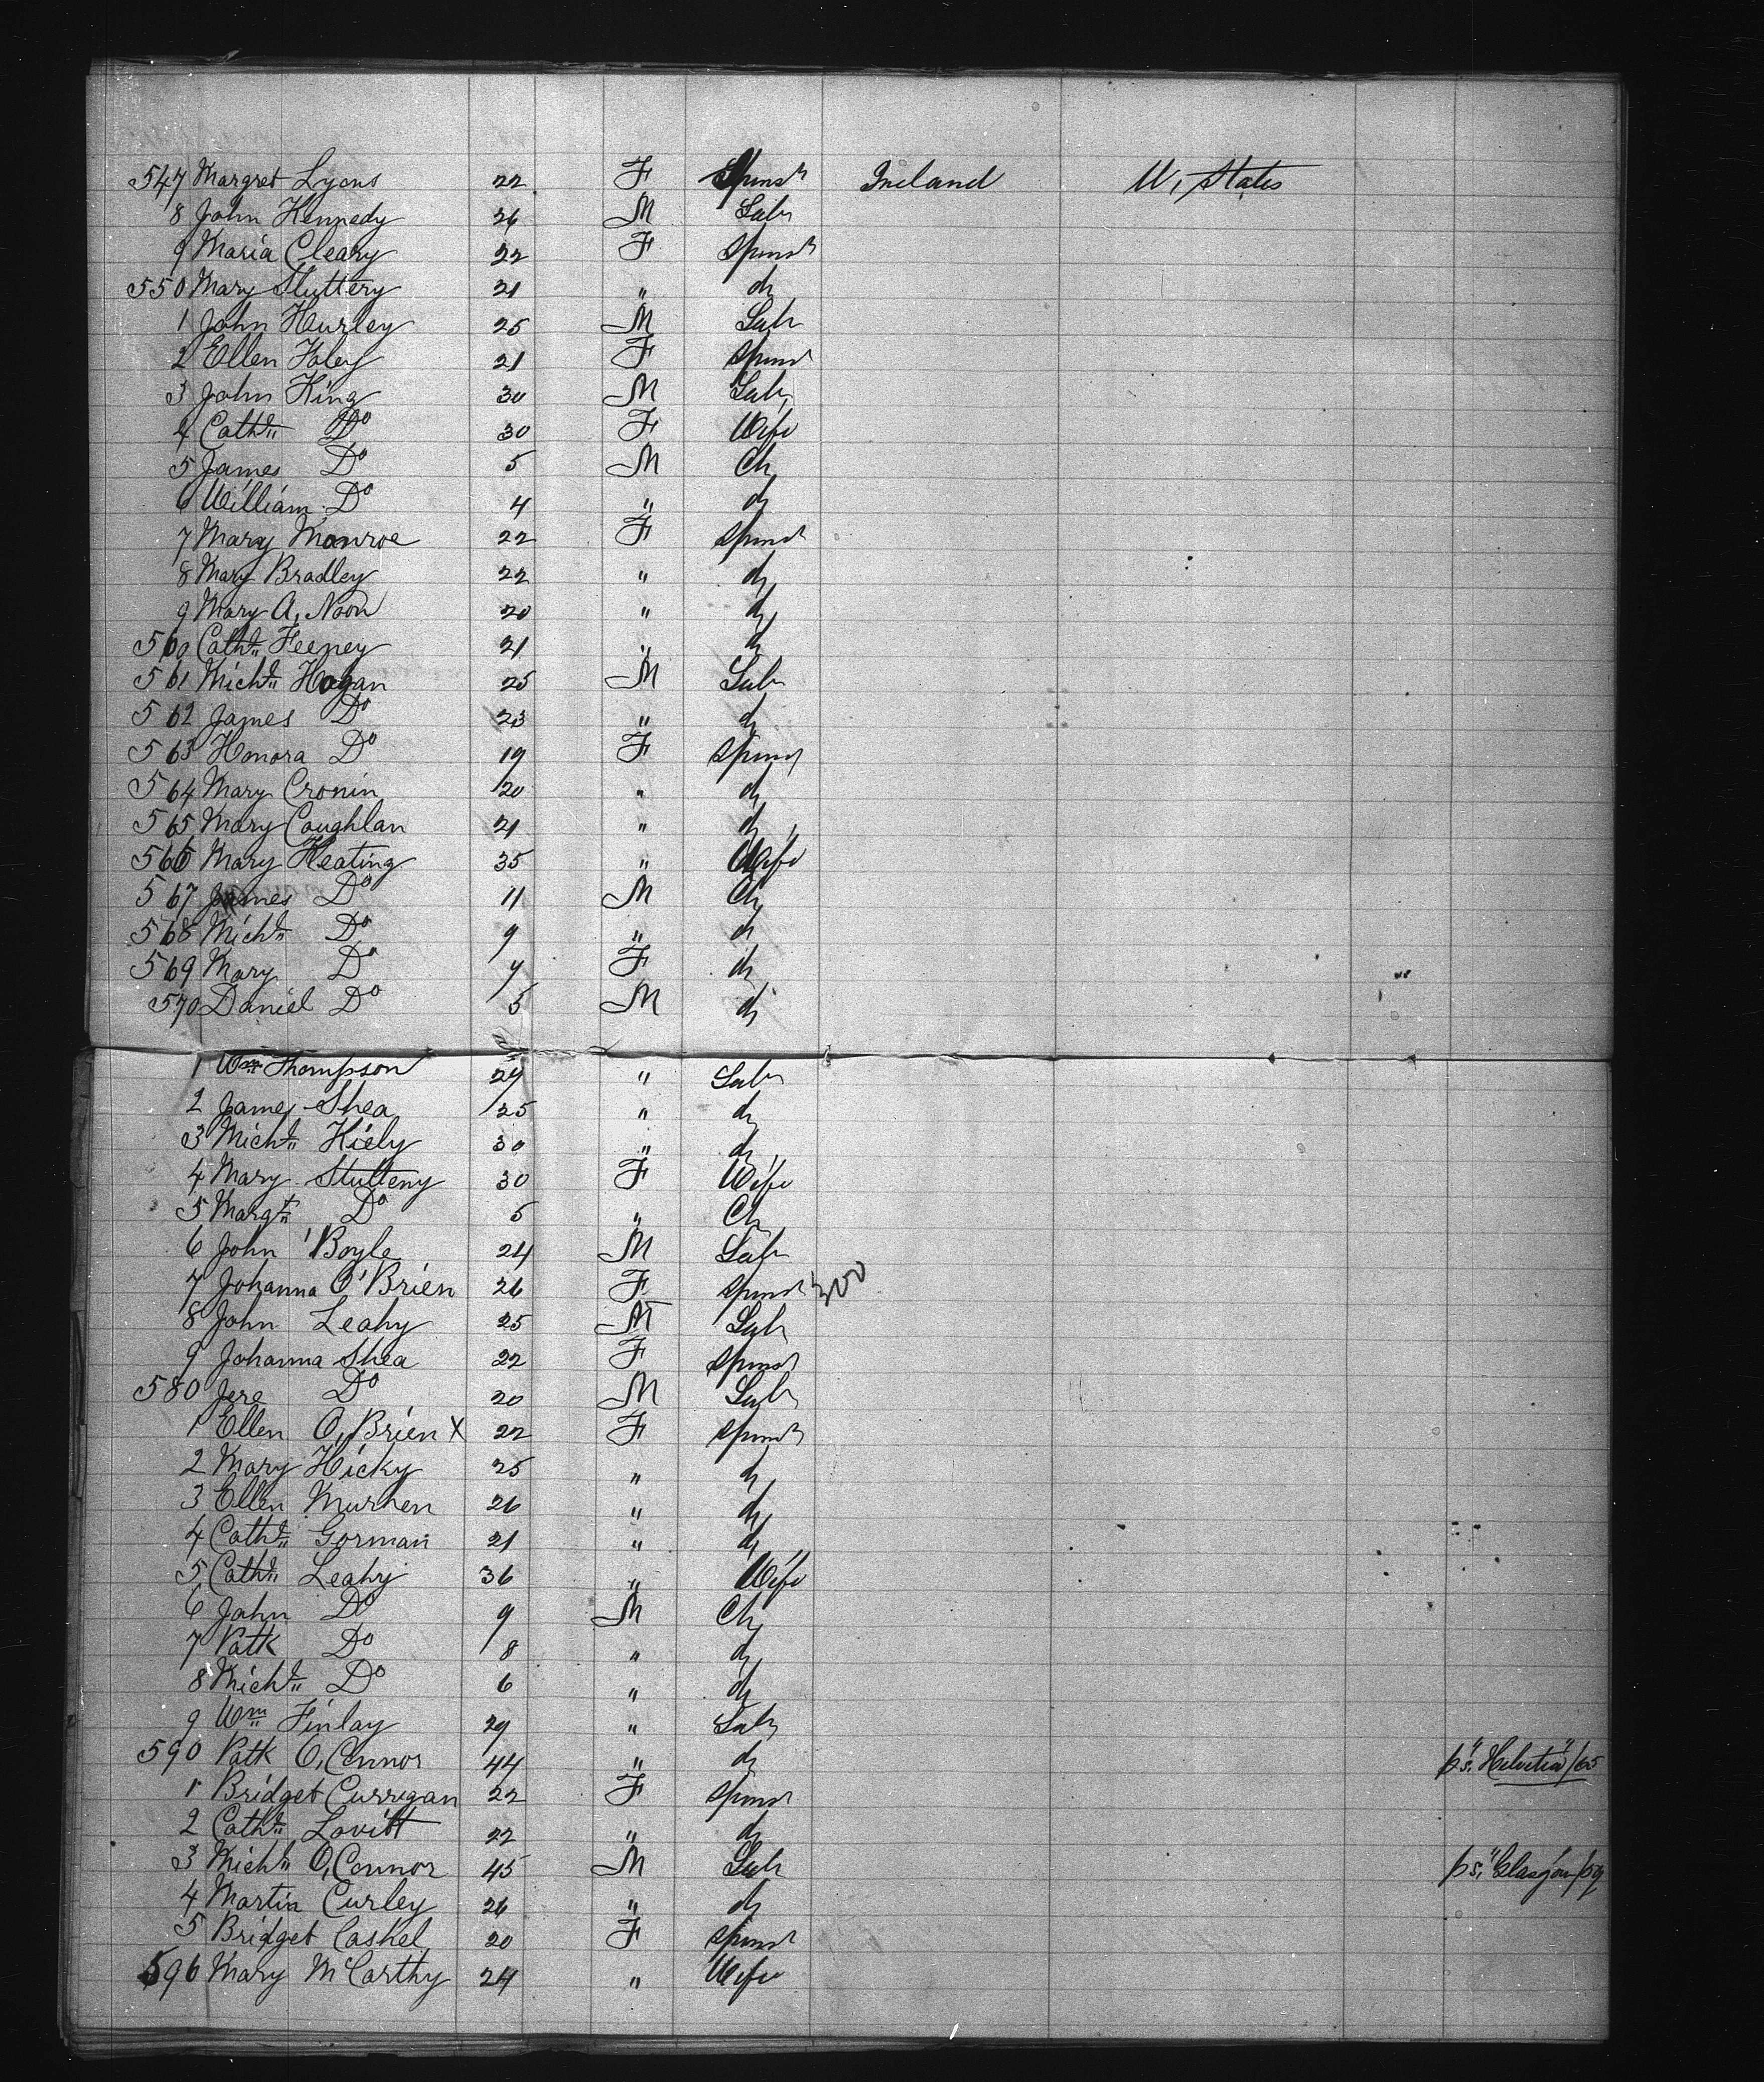 547 Margret Lyons 22 F Spinst Ireland U, States
8 John Kennedy 26 M Labr
9 Maria Cleary 22 F Spinst
550 Mary Sluttery 21 " do
1 John Hurley 25 M Labr
2 Ellen Foley 21 F Spinst
3 John King 30 M Labr
4 Cathe Do 30 F Wife
5 James Do 5 M Ch
6 William Do 4 " do
7 Mary Monroe 22 F Spinst
8 Mary Bradley 22 " do
9 Mary A, Noon 20 " do
560 Cathe Feeney 21 " do
561 Michl Hogan 25 M Labr
562 James Do 23 " do
563 Honora Do 19 F Spinst
564 Mary Cronin 20 " do
565 Mary Coughlan 21 " do
566 Mary Keating 35 " Wife
567 James Do 11 M Ch
568 Michl Do 9 " do
569 Mary Do 7 F do
570 Daniel Do 5 M do
1 Wm Thompson 24 " Labr
2 James Shea 25 " do
3 Michl Kiely 30 " do
4 Mary Slutteny 30 F Wife
5 Margt Do 5 " Ch
6 John Boyle 24 M Labr
7 Johanna O'Brien 26 F Spinst 300
8 John Leahy 25 M Labr
9 Johanna Shea 22 F Spinst
580 Jere Do 20 M Labr
1 Ellen O,Brien X 22 F Spinst
2 Mary Hicky 25 " do
3 Ellen 26 " do
4 Cathe Gorman 21 " do
5 Cathe Leahy 36 " Wife
6 John Do 9 M Ch
7 Patk Do 8 " do
8 Michl Do 6 " do
9 Wm Finlay 29 " Labr
590 Patk O,Connor 44 " do ps. "Helvetia"/65
1 Bridget Currigan 22 F Spinst
2 Cathe Lovitt 22 " do
3 Michl O,Connor 45 M Labr ps. "Glasgow/59
4 Martin Curley 26 " do
5 Bridget Caskel 20 F Spinst
596 Mary McCarthy 24 " Wife